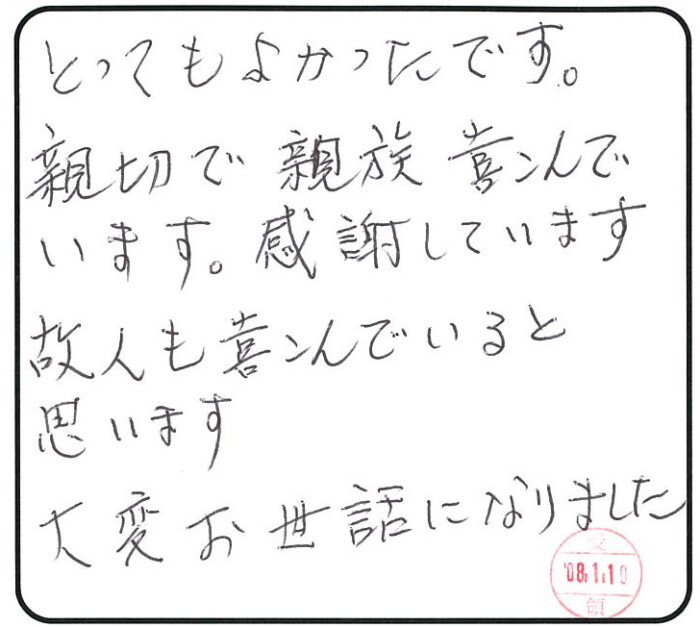 とってもよかったです。
親切で 親族 喜んで
います。感謝しています
故人も喜んでいると
思います
大変お世話になりました
受
'08.1.10
領